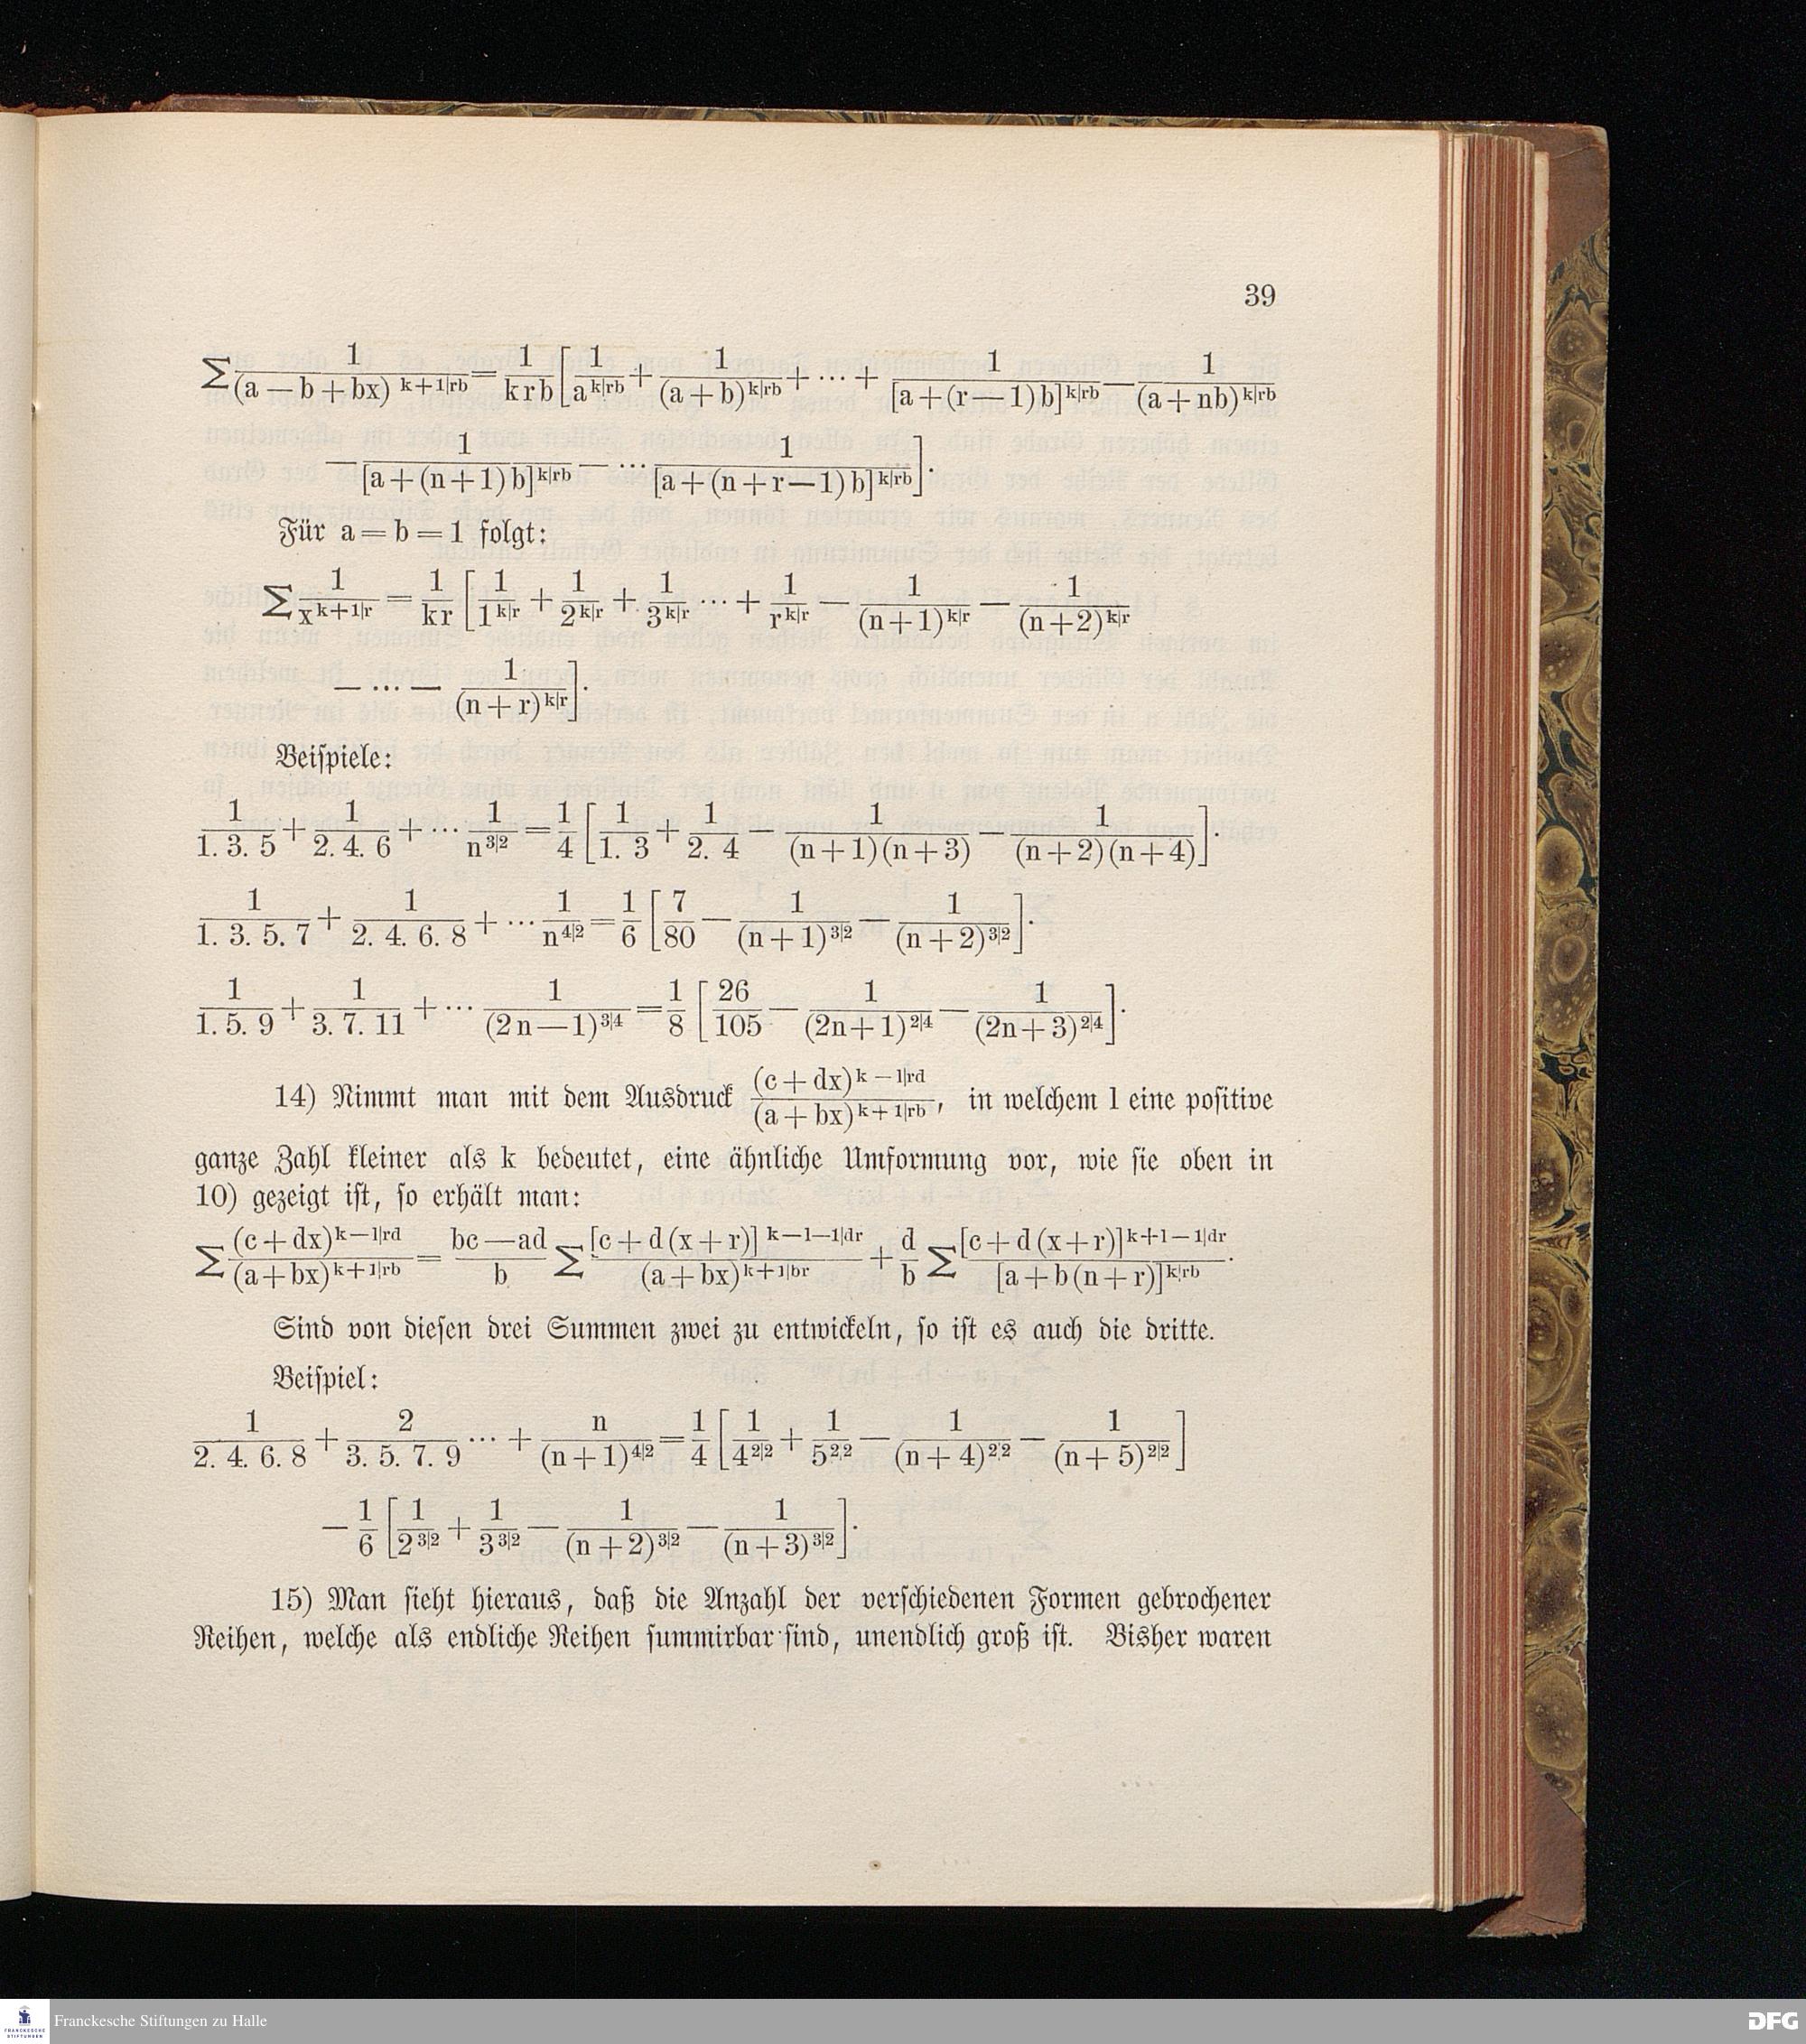 39
∑ 1/(a — b + bx)^{k+1|rb} = 1/(k r b) [ 1/a^{k|rb} + 1/(a + b)^{k|rb} + ··· + 1/[a + (r — 1) b]^{k|rb} — 1/(a + nb)^{k|rb}
— 1/[a + (n + 1) b]^{k|rb} — ··· 1/[a + (n + r — 1) b]^{k|rb} ].
Für a = b = 1 folgt:
∑ 1/x^{k+1|r} = 1/(kr) [ 1/1^{k|r} + 1/2^{k|r} + 1/3^{k|r} ··· + 1/r^{k|r} — 1/(n + 1)^{k|r} — 1/(n + 2)^{k|r}
— ··· — 1/(n + r)^{k|r} ].
Beiſpiele:
1/(1. 3. 5) + 1/(2. 4. 6) + ··· 1/n^{3|2} = 1/4 [ 1/(1. 3) + 1/(2. 4) — 1/((n + 1)(n + 3)) — 1/((n + 2)(n + 4)) ].
1/(1. 3. 5. 7) + 1/(2. 4. 6. 8) + ··· 1/n^{4|2} = 1/6 [ 7/80 — 1/(n + 1)^{3|2} — 1/(n + 2)^{3|2} ].
1/(1. 5. 9) + 1/(3. 7. 11) + ··· 1/(2n — 1)^{3|4} = 1/8 [ 26/105 — 1/(2n + 1)^{2|4} — 1/(2n + 3)^{2|4} ].
14) Nimmt man mit dem Ausdruck (c + dx)^{k—l|rd}/(a + bx)^{k+1|rb}, in welchem l eine poſitive
ganze Zahl kleiner als k bedeutet, eine ähnliche Umformung vor, wie ſie oben in
10) gezeigt iſt, ſo erhält man:
∑ (c + dx)^{k—l|rd}/(a + bx)^{k+1|rb} = (bc — ad)/b ∑ [c + d (x + r)]^{k—l—1|dr}/(a + bx)^{k+1|br} + d/b ∑ [c + d (x + r)]^{k+l—1|dr}/[a + b (n + r)]^{k|rb}.
Sind von dieſen drei Summen zwei zu entwickeln, ſo iſt es auch die dritte.
Beiſpiel:
1/(2. 4. 6. 8) + 2/(3. 5. 7. 9) ··· + n/(n + 1)^{4|2} = 1/4 [ 1/4^{2|2} + 1/5^{2|2} — 1/(n + 4)^{2|2} — 1/(n + 5)^{2|2} ]
— 1/6 [ 1/2^{3|2} + 1/3^{3|2} — 1/(n + 2)^{3|2} — 1/(n + 3)^{3|2} ].
15) Man ſieht hieraus, daß die Anzahl der verſchiedenen Formen gebrochener
Reihen, welche als endliche Reihen ſummirbar ſind, unendlich groß iſt. Bisher waren
FRANCKESCHE
STIFTUNGEN
Franckesche Stiftungen zu Halle
DFG